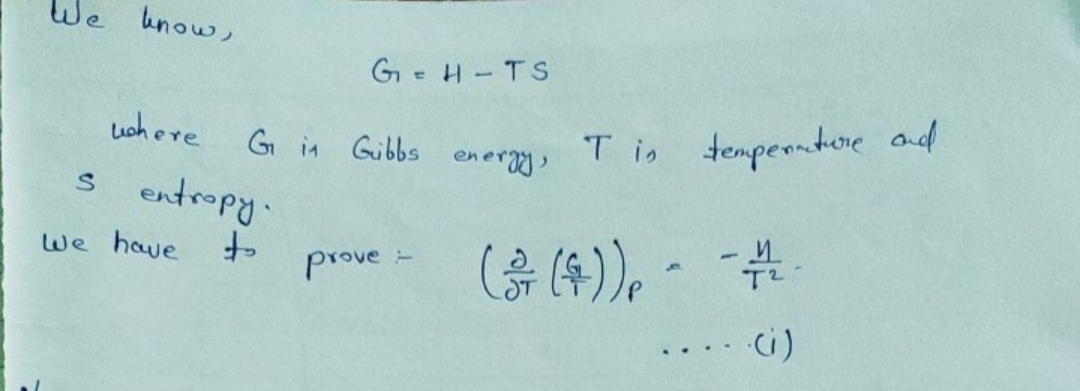 We know,
G = H - TS
where G is Gibbs energy, T is temperature and
S entropy.
We have to prove :- (∂/∂T (G/T))ₚ = - H/T² .
.....(i)